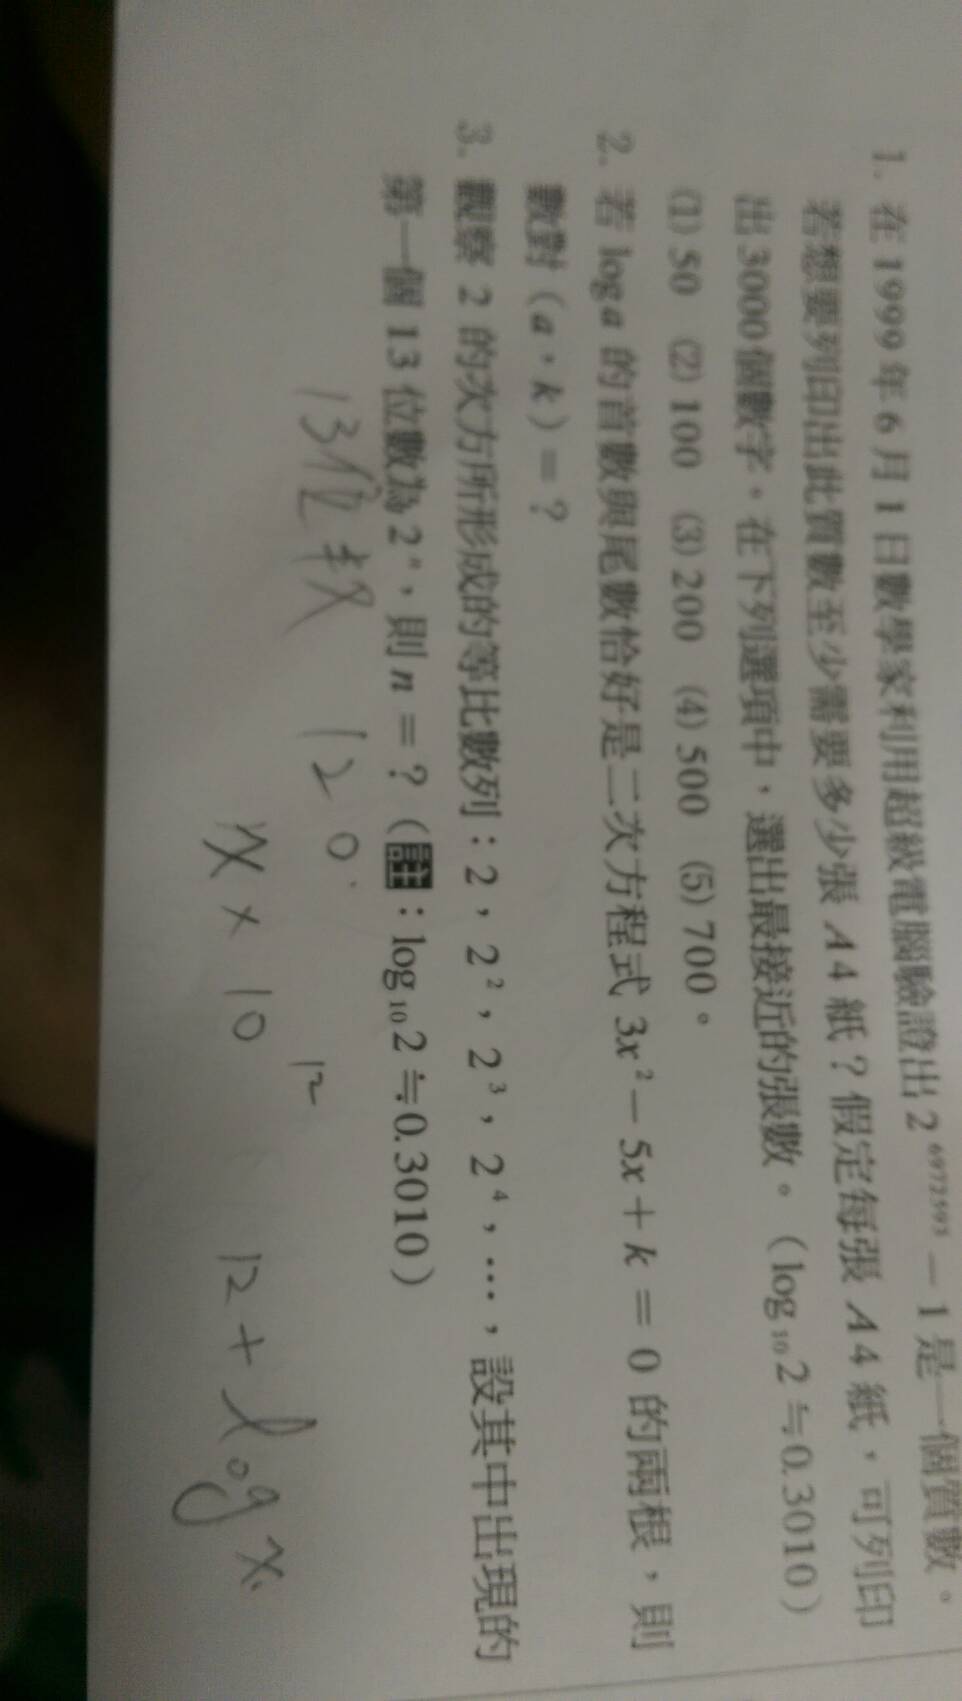 1. 在 1999 年 6 月 1 日數學家利用超級電腦驗證出 2^6972593 − 1 是一個質數。
若想要列印出此質數至少需要多少張 A4 紙？假定每張 A4 紙，可列印
出 3000 個數字。在下列選項中，選出最接近的張數。（log₁₀2≒0.3010）
(1) 50 (2) 100 (3) 200 (4) 500 (5) 700。
2. 若 log a 的首數與尾數恰好是二次方程式 3x² − 5x + k = 0 的兩根，則
數對（a，k）=？
3. 觀察 2 的次方所形成的等比數列：2，2²，2³，2⁴，…，設其中出現的
第一個 13 位數為 2ⁿ，則 n =？（註：log₁₀2≒0.3010）
13位數 12 0.
x × 10¹² 12 + log x.